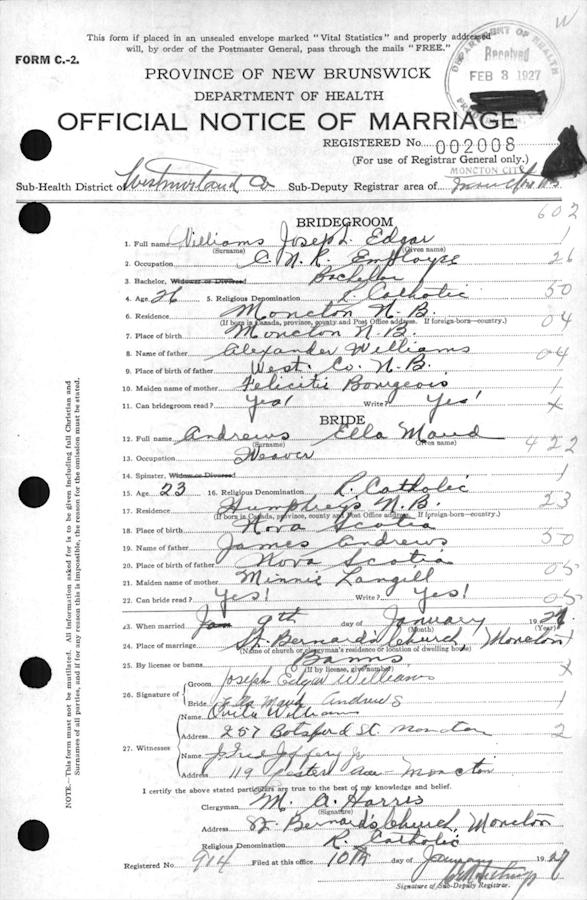 W
This form if placed in an unsealed envelope marked "Vital Statistics" and properly addressed
will, by order of the Postmaster General, pass through the mails "FREE."
FORM C.-2.
DEPARTMENT OF HEALTH
Received
FEB 3 1927
PROVINCE OF NEW BRUNSWICK
DEPARTMENT OF HEALTH
OFFICIAL NOTICE OF MARRIAGE
REGISTERED No. 002008
(For use of Registrar General only.)
MONCTON CITY
Sub-Health District of Westmorland Co Sub-Deputy Registrar area of Moncton
602
BRIDEGROOM
1. Full name Williams Joseph Edgar 1
(Surname) (Given names)
2. Occupation C.N.R. Employee 26
3. Bachelor, Widower or Divorced Bachelor
4. Age 26 5. Religious Denomination R. Catholic 50
6. Residence Moncton N.B. 04
(If born in Canada, province, county and Post Office address. If foreign-born—country.)
7. Place of birth Moncton N.B.
8. Name of father Alexander Williams 04
9. Place of birth of father West. Co. N.B.
10. Maiden name of mother Felicitie Bourgeois 1
11. Can bridegroom read? Yes! Write? Yes! x
BRIDE
12. Full name Andrews Ella Maud 422
(Surname) (Given names)
13. Occupation Weaver
14. Spinster, Widow or Divorced 1
15. Age 23 16. Religious Denomination R. Catholic 23
17. Residence Humphreys N.B.
(If born in Canada, province, county and Post Office address. If foreign-born—country.)
18. Place of birth Nova Scotia
19. Name of father James Andrews 50
20. Place of birth of father Nova Scotia
21. Maiden name of mother Minnie Langill 05
22. Can bride read? Yes! Write? Yes! 05
23. When married Jan 9th day of January 1927
(Month) (Year)
24. Place of marriage St. Bernard's Church Moncton 1
(Name of church or clergyman's residence or location of dwelling house)
25. By license or banns Banns x
(If by license, give number)
26. Signature of Groom Joseph Edgar Williams
Bride Ella Maud Andrews 1
27. Witnesses Name Williams
Address 257 Botsford St. Moncton 2
Name Jr
Address 119 Ave Moncton
I certify the above stated particulars are true to the best of my knowledge and belief.
Clergyman M. A. Harris
(Signature)
Address St. Bernard's Church Moncton
Religious Denomination R. Catholic
Registered No. 914 Filed at this office 10th day of January 1927
Signature of Sub-Deputy Registrar.
NOTE.—This form must not be mutilated. All information asked for is to be given including full Christian and
Surnames of all parties, and if for any reason this is impossible, the reason for the omission must be stated.